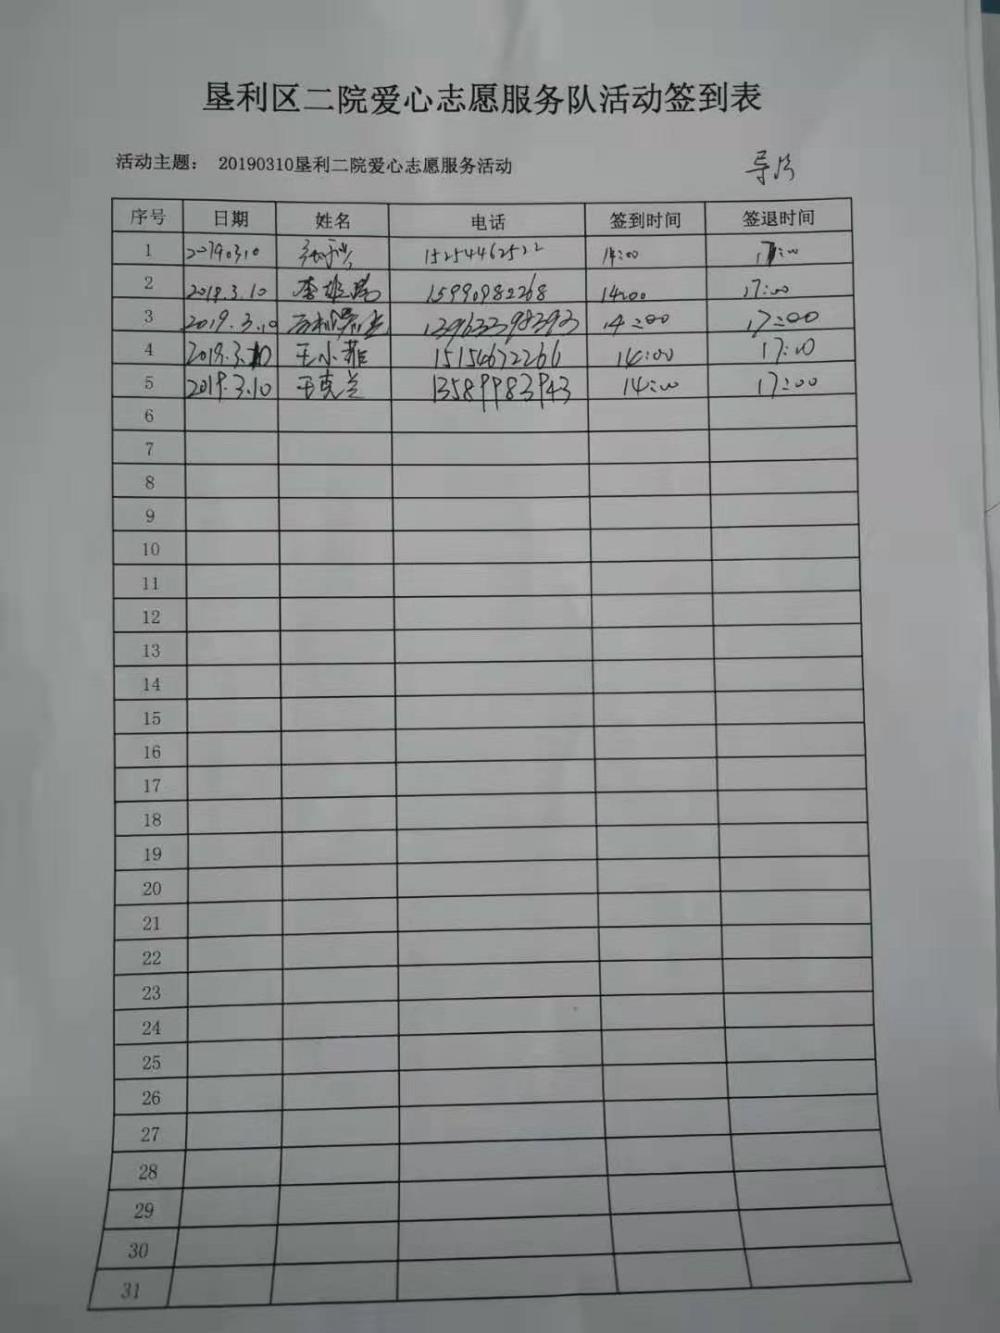 垦利区二院爱心志愿服务队活动签到表
活动主题： 20190310垦利二院爱心志愿服务活动
导诊
序号 日期 姓名 电话 签到时间 签退时间
1 20190310 15254462522 14:00 17:00
2 2019.3.10 李 15990982268 14:00 17:00
3 2019.3.10 13963398393 14:00 17:00
4 2019.3.10 王小菲 15154672266 14:00 17:00
5 2019.3.10 王克兰 13589983943 14:00 17:00
6
7
8
9
10
11
12
13
14
15
16
17
18
19
20
21
22
23
24
25
26
27
28
29
30
31